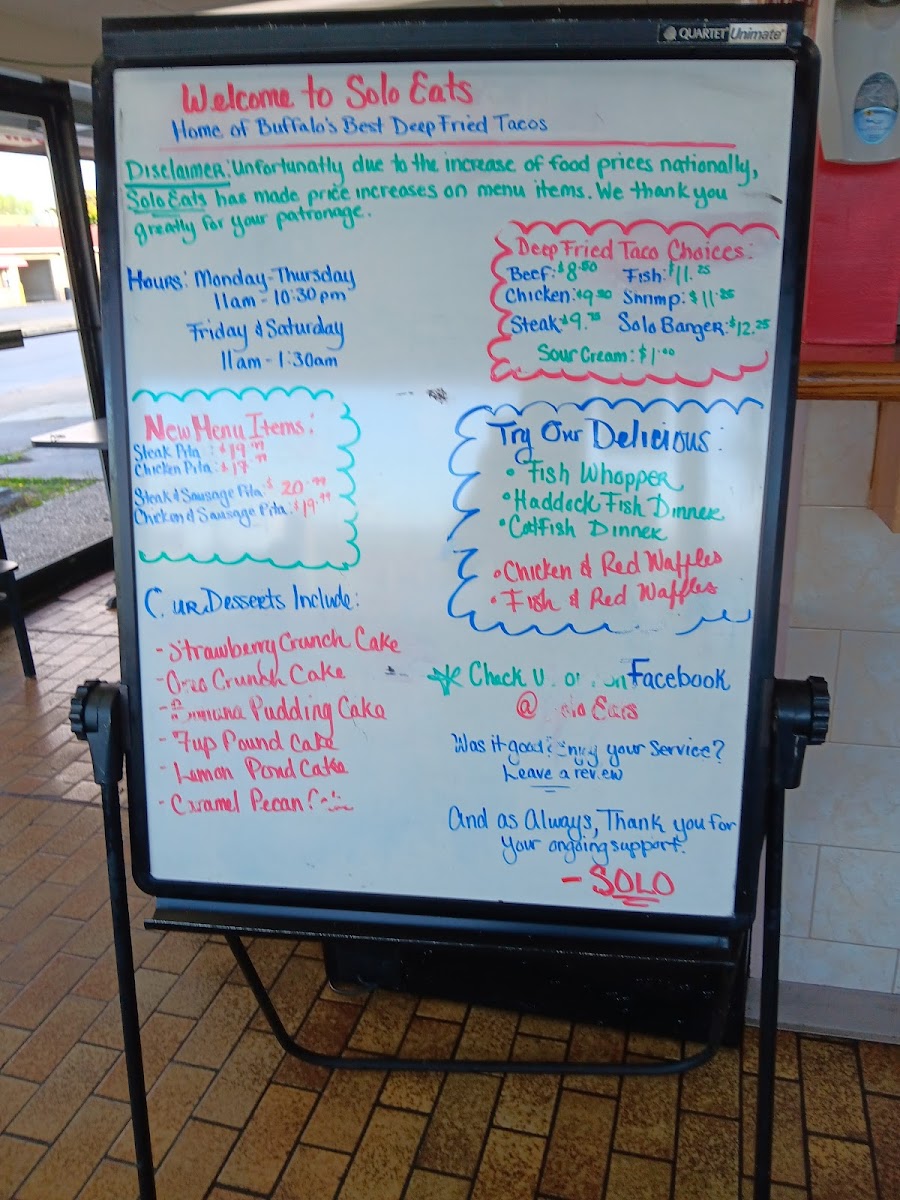 QUARTET Unimate
Welcome to Solo Eats
Home of Buffalo's Best Deep Fried Tacos
Disclaimer: Unfortunatly due to the increase of food prices nationally,
Solo Eats has made price increases on menu items. We thank you
greatly for your patronage.
Hours: Monday-Thursday
11am - 10:30pm
Friday & Saturday
11am - 1:30am
Deep Fried Taco Choices:
Beef: $8.50 Fish: $11.25
Chicken: $9.50 Shrimp: $11.25
Steak $9.75 Solo Banger: $12.25
Sour Cream: $1.00
New Menu Items:
Steak Pita : $19.99
Chicken Pita: $17.99
Steak & Sausage Pita: $20.99
Chicken & Sausage Pita: $19.99
Try Our Delicious:
• Fish Whopper
• Haddock Fish Dinner
• Catfish Dinner
• Chicken & Red Waffles
• Fish & Red Waffles
Our Desserts Include:
- Strawberry Crunch Cake
- Oreo Crunch Cake
- Banana Pudding Cake
- 7up Pound Cake
- Lemon Pond Cake
- Caramel Pecan
Check U on Facebook
@ Solo Eats
Was it good? Enjoy your service?
Leave a review
And as Always, Thank you for
your ongoing support.
- SOLO